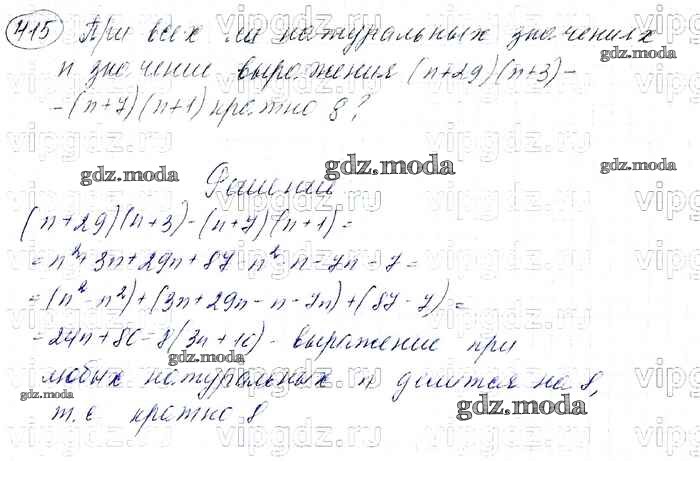 415 При всех ли натуральных значениях
n значение выражения (n+29)(n+3)-
-(n+7)(n+1) кратно 8?
Решение
(n+29)(n+3)-(n+7)(n+1)=
=n²+3n+29n+87-n²-n-7n-7=
=(n²-n²)+(3n+29n-n-7n)+(87-7)=
=24n+80=8(3n+10) - выражение при
любых натуральных n делится на 8,
т.е кратно 8
gdz.moda
gdz.moda
gdz.moda
gdz.moda
gdz.moda
gdz.moda
gdz.moda
vipgdz.ru